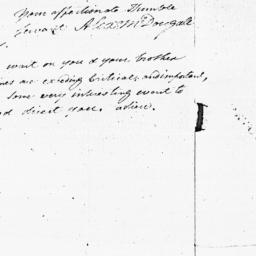 your affectionate Humble
Servant Alexr McDougall
wait on you & your brother
are exceeding Critical, and important,
some very interesting event to
direct you. adieu.